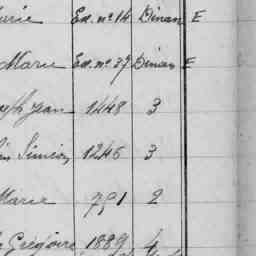 Marie Ex. nº 14 Dinan E
Marie Ex. nº 39 Dinan E
Joseph Jean 1448 3
Siméon 1246 3
Marie 791 2
Grégoire 1889 4